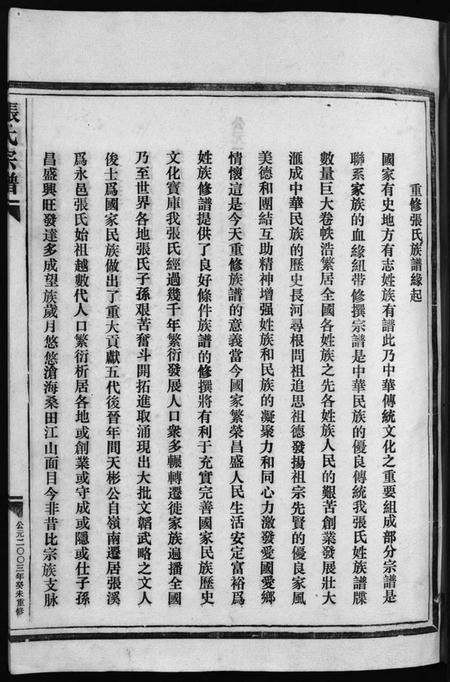 重修張氏族譜緣起
國家有史地方有志姓族有譜此乃中華傳統文化之重要組成部分宗譜是
聯系家族的血緣紐帶修撰宗譜是中華民族的優良傳統我張氏姓族譜牒
數量巨大卷帙浩繁居全國各姓族之先各姓族人民的艱苦創業發展壯大
滙成中華民族的歷史長河尋根問祖追思祖德發揚祖宗先賢的優良家風
美德和團結互助精神增强姓族和民族的凝聚力和同心力激發愛國愛鄉
情懷這是今天重修族譜的意義當今國家繁榮昌盛人民生活安定富裕爲
姓族修譜提供了良好條件族譜的修撰將有利于充實完善國家民族歷史
文化寶庫我張氏經過幾千年繁衍發展人口衆多輾轉遷徙家族遍播全國
乃至世界各地張氏子孫艱苦奮斗開拓進取涌現出大批文韜武略之文人
俊士爲國家民族做出了重大貢獻五代後晉年間天彬公自嶺南遷居張溪
爲永邑張氏始祖越數代人口繁衍析居各地或創業或守成或隱或仕子孫
昌盛興旺發達多成望族歲月悠悠滄海桑田江山面目今非昔比宗族支脉
張氏宗譜
公元二00三年癸未重修